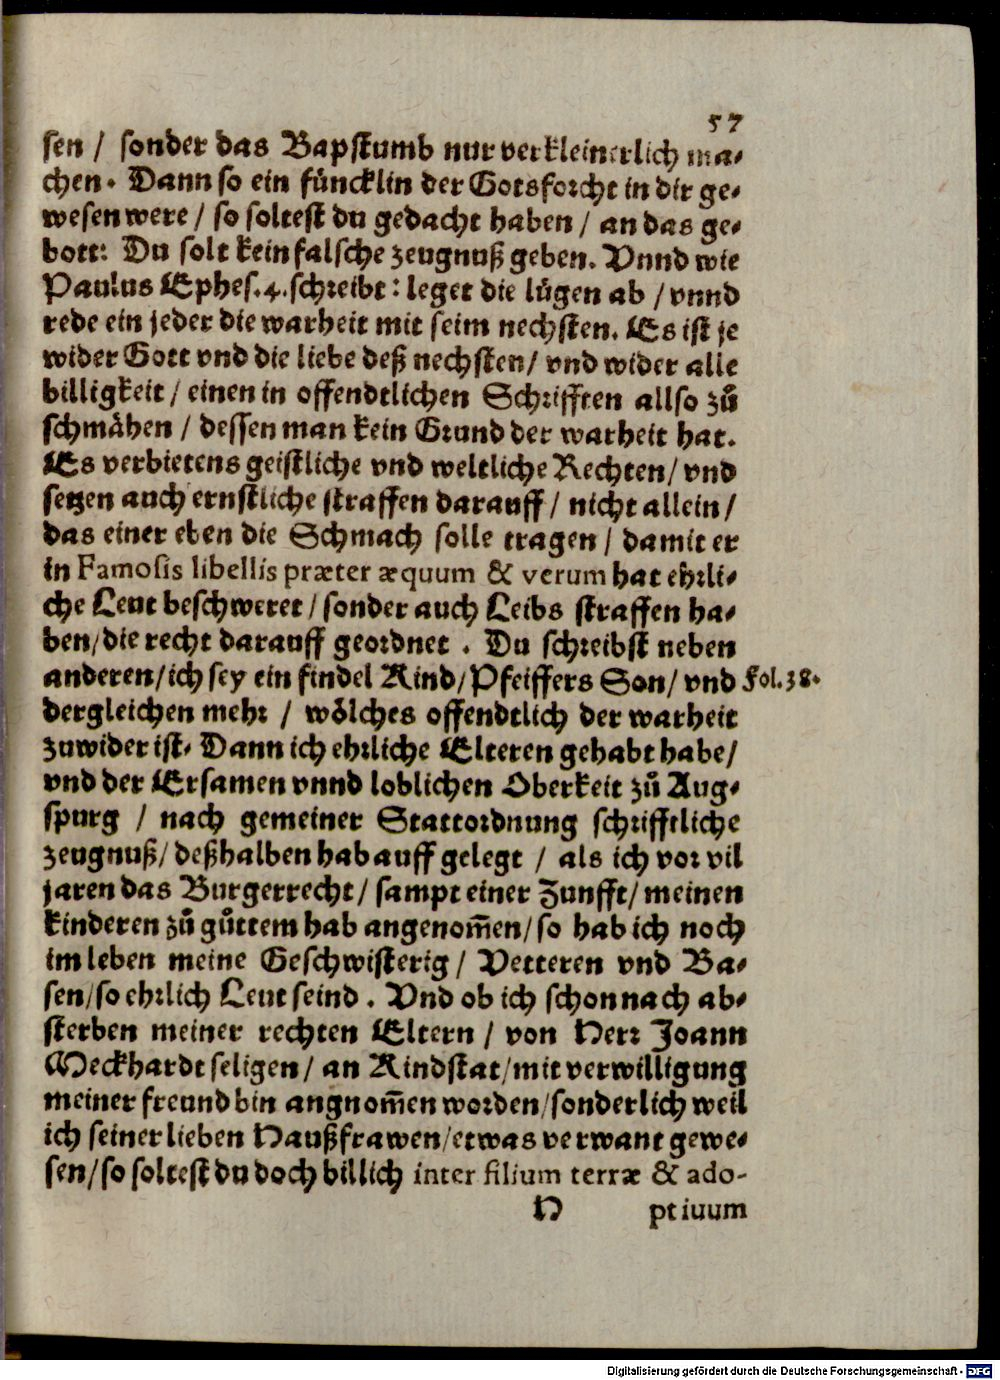 57
sen / sonder das Bapstumb nur verkleinerlich ma-
chen. Dann so ein füncklin der Gotsforcht in dir ge-
wesen were / so soltest du gedacht haben / an das ge-
bott: Du solt kein falsche zeugnuß geben. Vnnd wie
Paulus Ephes.4. schreibt: leget die lügen ab / vnnd
rede ein jeder die warheit mit seim nechsten. Es ist je
wider Gott vnd die liebe deß nechsten / vnd wider alle
billigkeit / einen in offendtlichen Schrifften allso zů
schmähen / dessen man kein Grund der warheit hat.
Es verbietens geistliche vnd weltliche Rechten / vnd
setzen auch ernstliche straffen darauff / nicht allein /
das einer eben die Schmach solle tragen / damit er
in Famosis libellis præter æquum & verum hat ehrli-
che Leut beschweret / sonder auch Leibs straffen ha-
ben / die recht darauff geordnet . Du schreibst neben
anderen / ich sey ein findel Kind / Pfeiffers Son / vnd Fol.38.
dergleichen mehr / wölches offendtlich der warheit
zuwider ist. Dann ich ehrliche Elteren gehabt habe /
vnd der Ersamen vnnd loblichen Oberkeit zů Aug-
spurg / nach gemeiner Stattordnung schrifftliche
zeugnuß / deßhalben hab auff gelegt / als ich vor vil
jaren das Burgerrecht / sampt einer Zunfft / meinen
kinderen zů gůttem hab angenom̄en / so hab ich noch
im leben meine Geschwisterig / Vetteren vnd Ba-
sen / so ehrlich Leut seind . Vnd ob ich schon nach ab-
sterben meiner rechten Eltern / von Herr Joann
Meckhardt seligen / an Kindstat / mit verwilligung
meiner freund bin angnom̄en worden / sonderlich weil
ich seiner lieben Haußfrawen / etwas verwant gewe-
sen / so soltest du doch billich inter filium terræ & ado-
H ptiuum
Digitalisierung gefördert durch die Deutsche Forschungsgemeinschaft - DFG